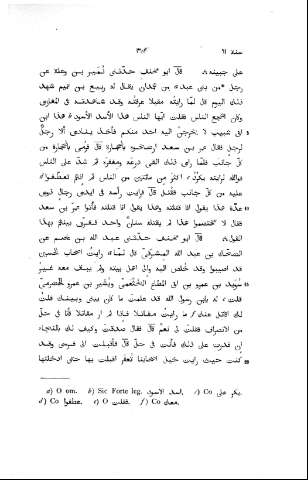 سنة ٦١
٣٤٣
على جبينه قال ابو مخنف حدّثنى نُمَيْر بن وعلة عن
رجل من بنى عبد من همدان يقال له ربيع بن تميم شهد
ذلك اليوم قال لمّا رأيته مقبلا عرفته وقد شاهدته فى المغازى
وكان اشجع الناس فقلت ايّها الناس هذا الأسد الأسود هذا ابن
ابى شبيب لا يخرجنّ اليه احد منكم فأخذ ينادى ألا رجلٌ
لرجل فقال عمر بن سعد ارضخوه بالحجارة قال فرُمى بالحجارة من
كلّ جانب فلمّا رأى ذلك القى درعه ومغفره ثم شدّ على الناس
فوالله لرأيته يكرد اكثر من مائتين من الناس ثم انّهم تعطّفوا
عليه من كلّ جانب فقُتل قال فرأيت رأسه فى ايدى رجال ذوى
عدّة هذا يقول انا قتلته وهذا يقول انا قتلته فأتوا عمر بن سعد
فقال لا تختصموا هذا لم يقتله سنان واحد ففرّق بينهم بهذا
القول قال ابو مخنف حدّثنى عبد الله بن عاصم عن
الضحّاك بن عبد الله المشرقىّ قال لمّا رأيت اصحاب الحسين
قد اصيبوا وقد خُلص اليه والى اهل بيته ولم يبق معه غير
سُوَيد بن عمرو بن ابى المطاع الخثعمى وبُشير بن عمرو الحضرمى
قلت له يابن رسول الله قد علمتَ ما كان بينى وبينك قلتُ
لك اقاتل عنك ما رأيتُ مقاتلا فاذا لم ار مقاتلا فأنا فى حلّ
من الانصراف فقلتَ لى نعم قال فقال صدقتَ وكيف لك بالنجاء
ان قدرت على ذلك فأنت فى حلّ قال فأقبلت الى فرسى وقد
كنت حيث رأيت خيل اصحابنا تُعقر اقبلت بها حتى ادخلتها
a) O om. b) Sic Forte leg. اسد الاسود. c) Co يكر على.
d) Co عطفوا. e) O فقلت. f) Co معك.